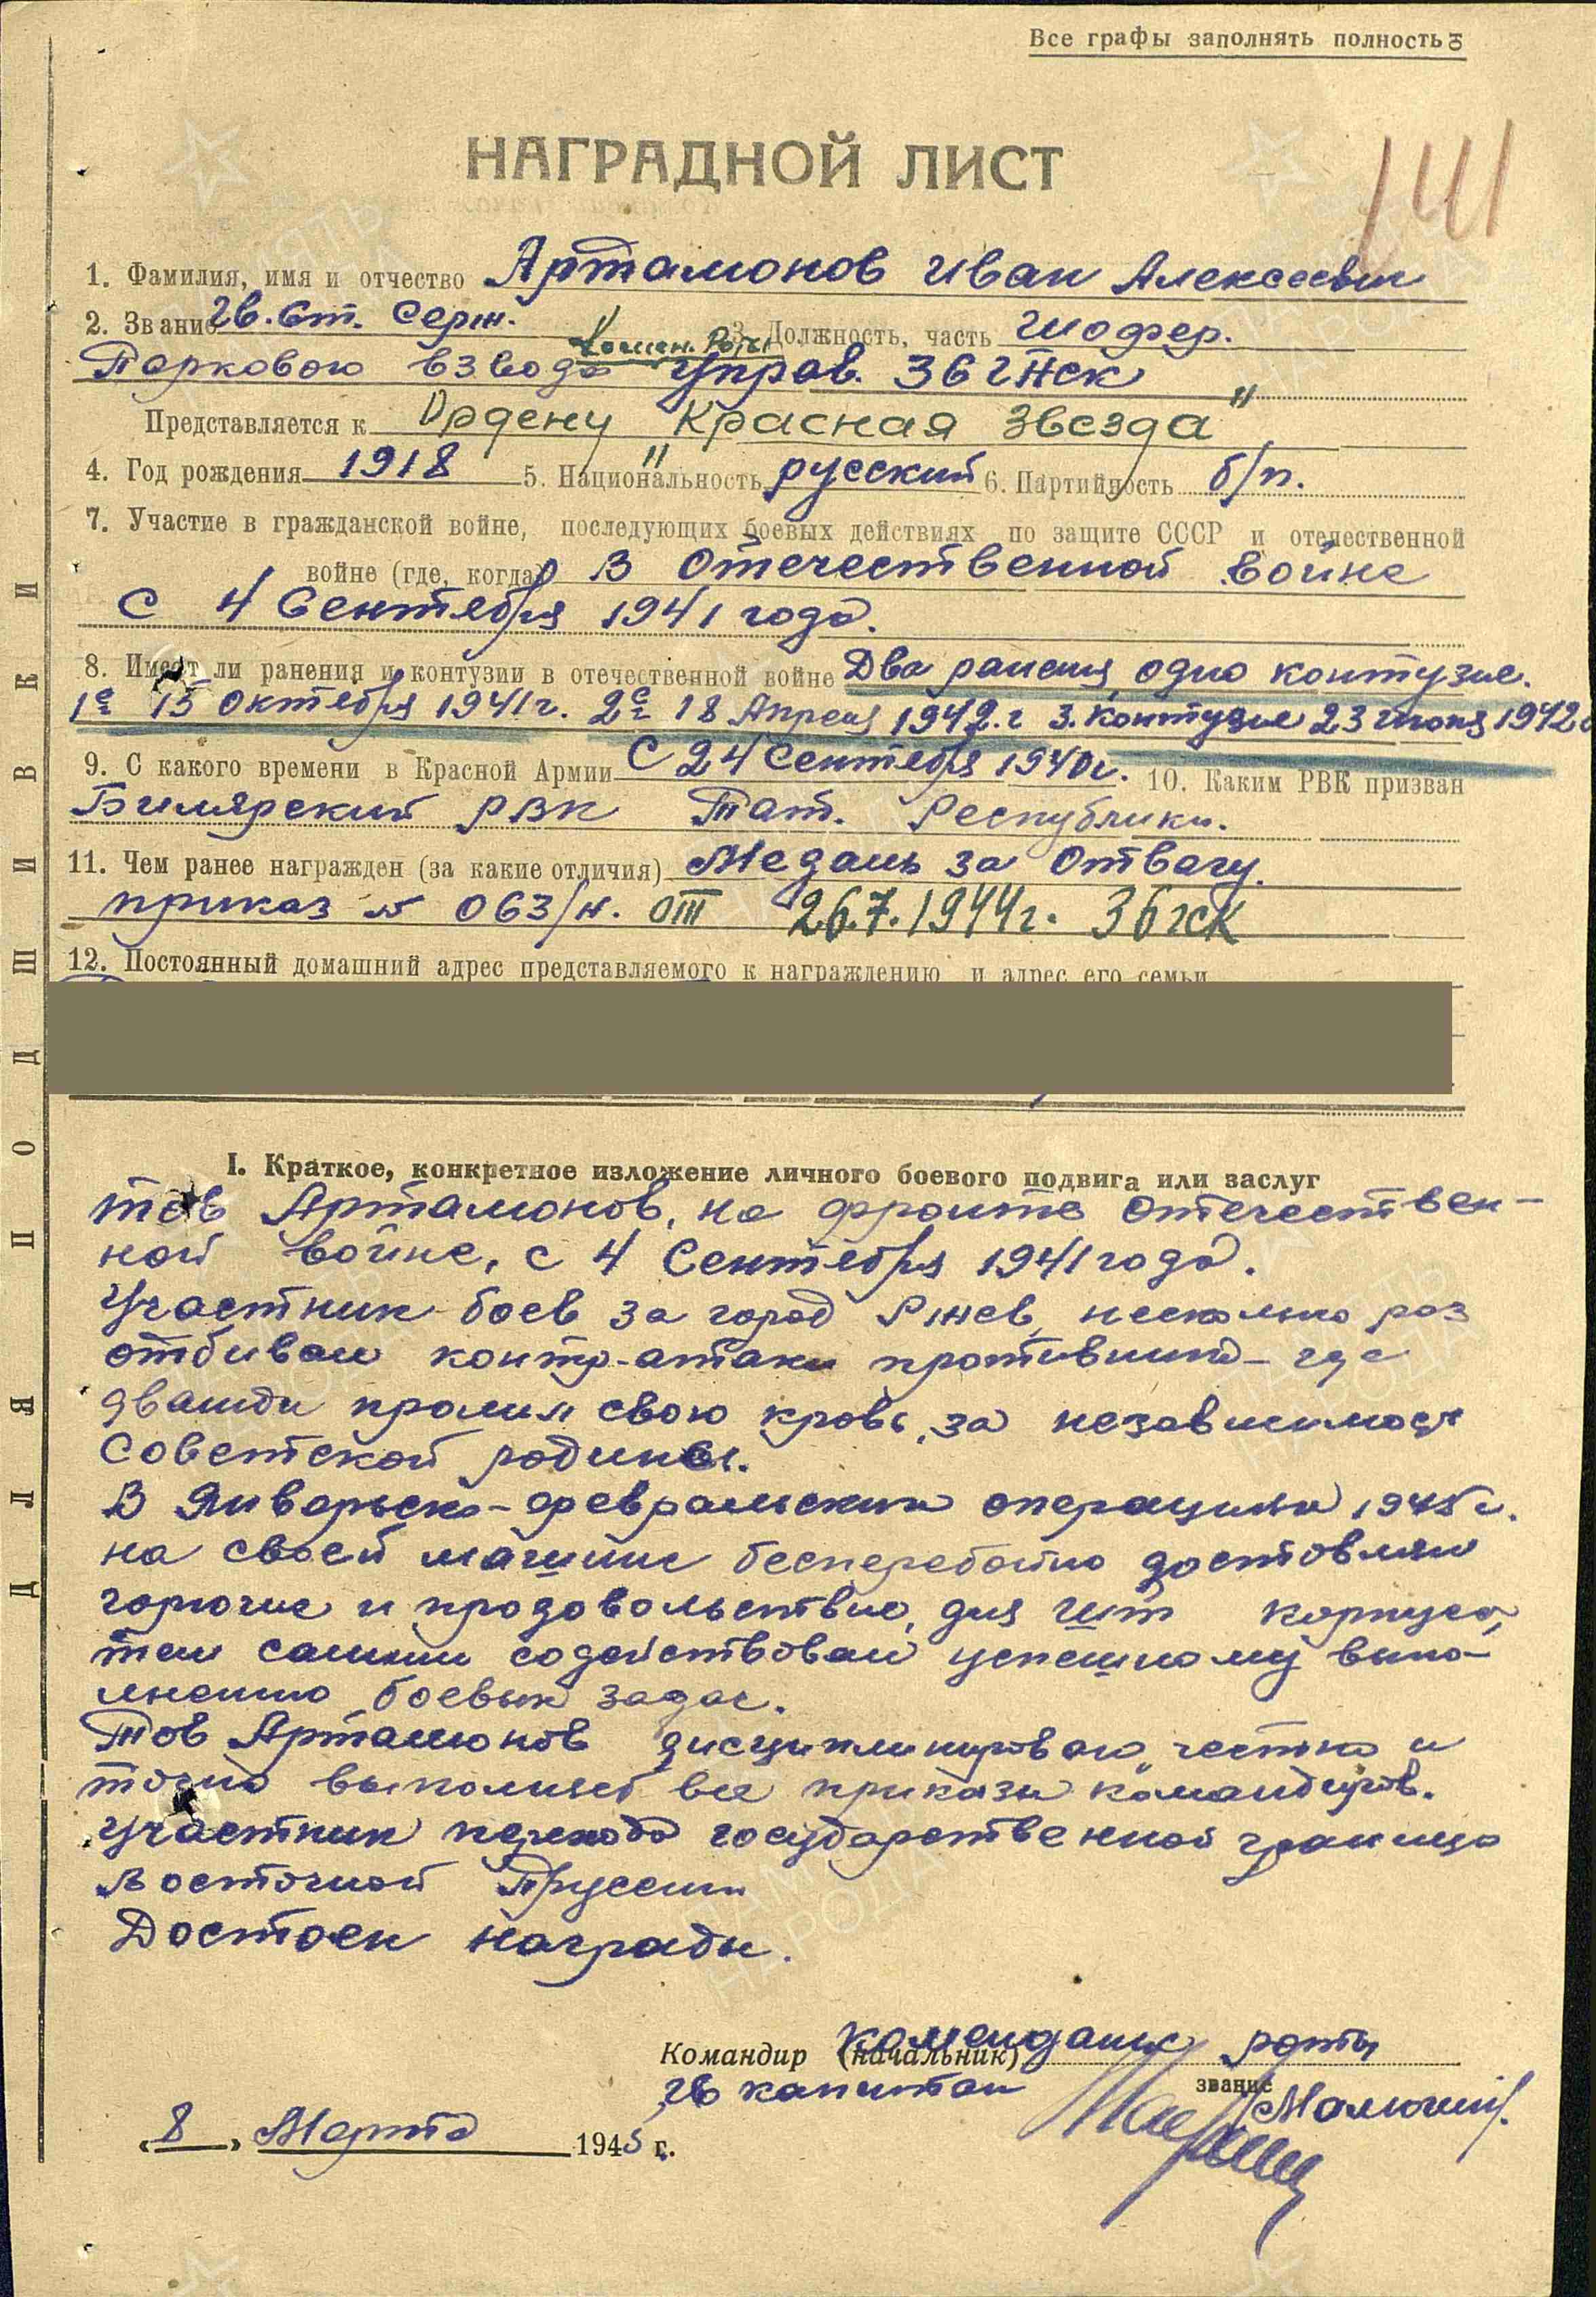 Все графы заполнять полностью
141
НАГРАДНОЙ ЛИСТ
1. Фамилия, имя и отчество Артамонов Иван Алексеевич
2. Звание Гв. Ст. Серж. 3. Должность, часть Шофер.
Коммен. Роты
Паркового взвода Управ. 36 ГНСК
Представляется к Ордену "Красная Звезда"
4. Год рождения 1918 5. Национальность русский 6. Партийность б/п.
7. Участие в гражданской войне, последующих боевых действиях по защите СССР и отечественной
войне (где, когда) В Отечественной войне
с 4 Сентября 1941 года.
8. Имеет ли ранения и контузии в отечественной войне Два ранения, одно контузие.
1е 15 Октября 1941г. 2е 18 Апреля 1942.г 3. контузие 23 июня 1942г
9. С какого времени в Красной Армии С 24 Сентября 1940г. 10. Каким РВК призван
Билярский РВК Тат. Республики.
11. Чем ранее награжден (за какие отличия) Медаль за Отвагу.
приказ № 063/н. от 26.7.1944г. 36 гск
12. Постоянный домашний адрес представляемого к награждению и адрес его семьи
I. Краткое, конкретное изложение личного боевого подвига или заслуг
тов Артамонов, на фронте Отечествен-
ной войне, с 4 Сентября 1941 года.
Участник боев за город Ржев, несколько раз
отбивал контр-атаки противника- где
дважди пролил свою кровь, за независимость
Советской родины.
В Январьско-февральских операциях 1945г.
на своей машине бесперебойно доставлял
горючие и продовольствие, для корпуса,
тем самым содействовал успешному выпо-
лнению боевых задач.
Тов Артамонов дисциплинирован, честно и
точно выполняет все приказы командиров.
Участник перехода государственной границы
Восточной Пруссии
Достоен награды.
Командир (начальник) Комендант роты
гв капитан звание /Малютин/.
"8" Марта 1945 г.
ДЛЯ ПОДШИВКИ